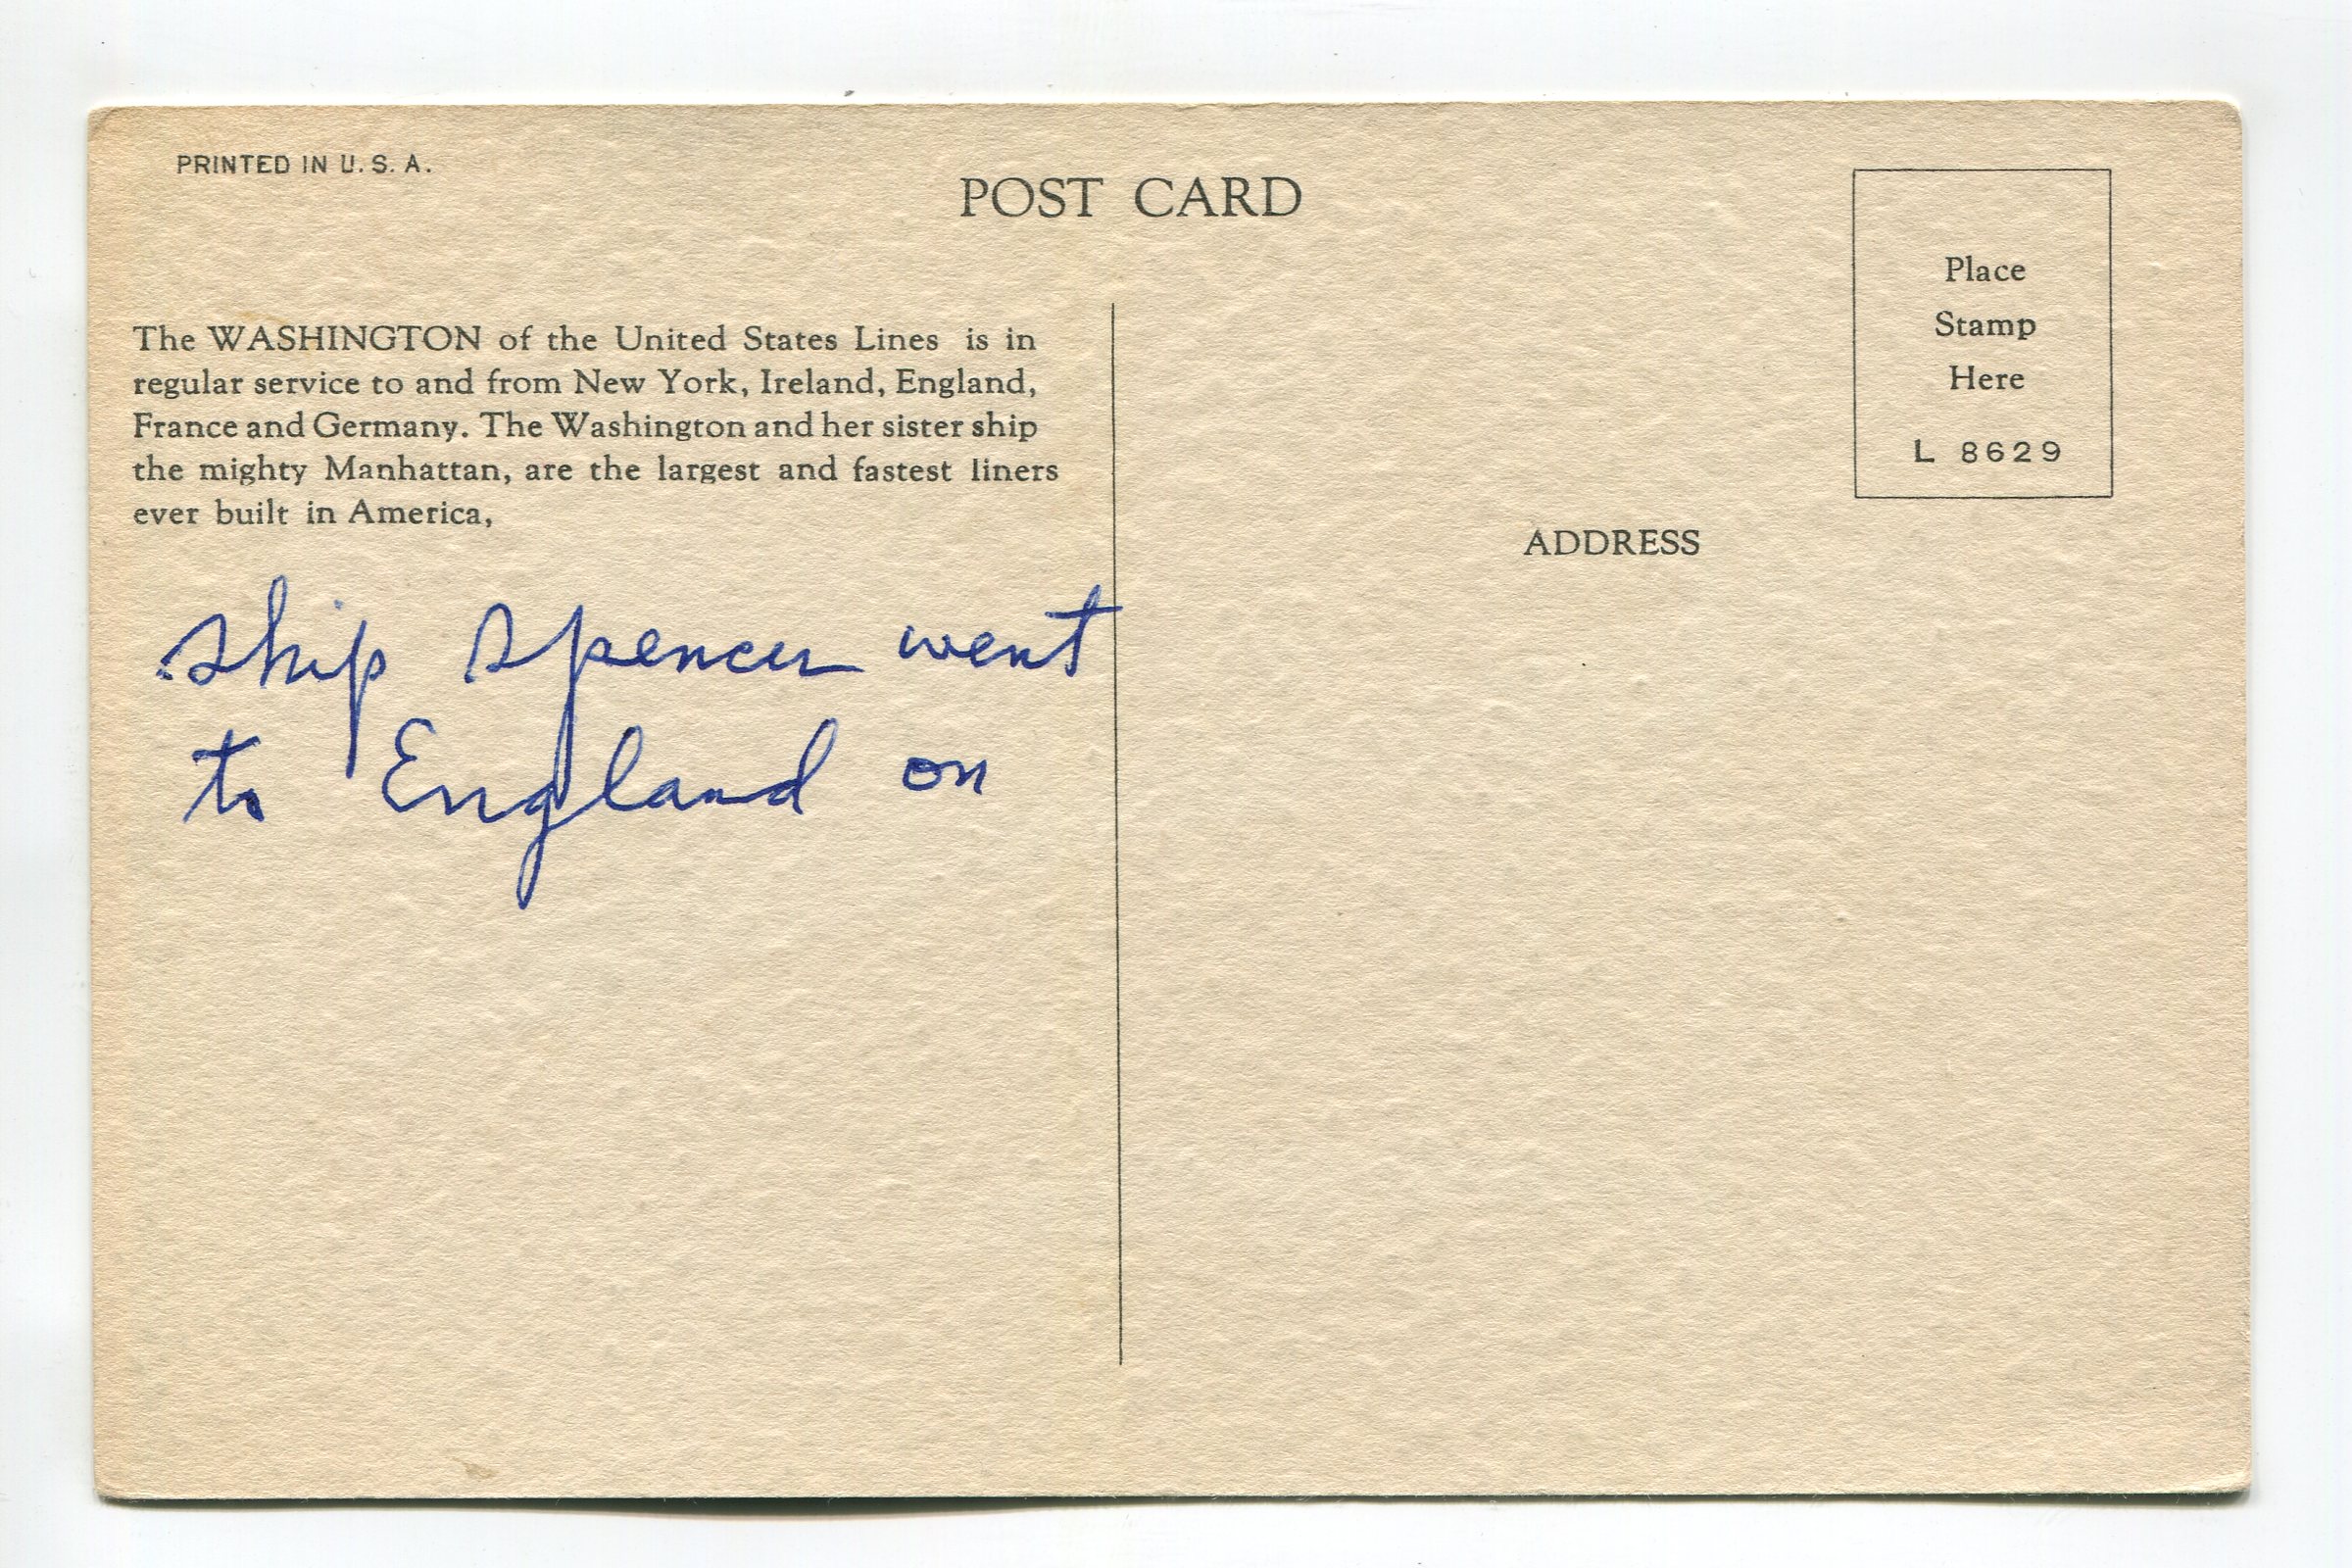 PRINTED IN U. S. A.
POST CARD
The WASHINGTON of the United States Lines is in
regular service to and from New York, Ireland, England,
France and Germany. The Washington and her sister ship
the mighty Manhattan, are the largest and fastest liners
ever built in America,
ship Spencer went
to England on
Place
Stamp
Here
L 8629
ADDRESS